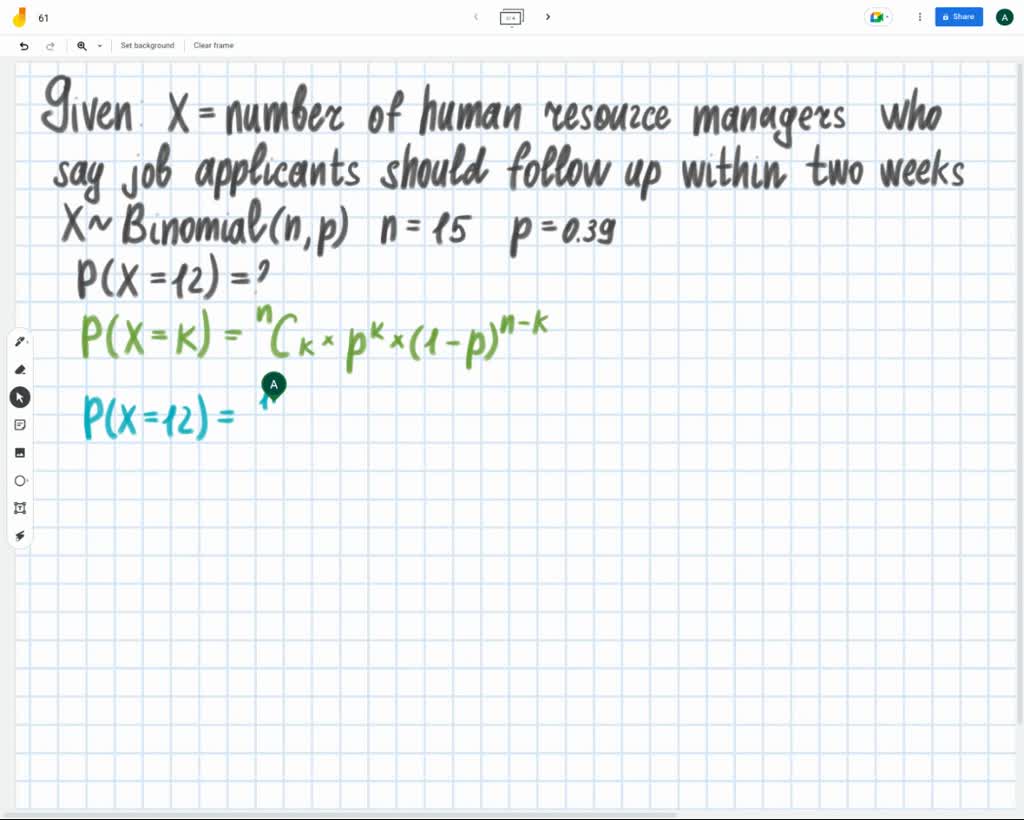 61
Share
A
Set background
Clear frame
Given: X = number of human resource managers who
say job applicants should follow up within two weeks
X ~ Binomial(n,p) n = 15 p = 0.39
P(X = 12) = ?
P(X = k) = ⁿCₖ × pᵏ × (1-p)ⁿ⁻ᵏ
A
P(X = 12) = 1